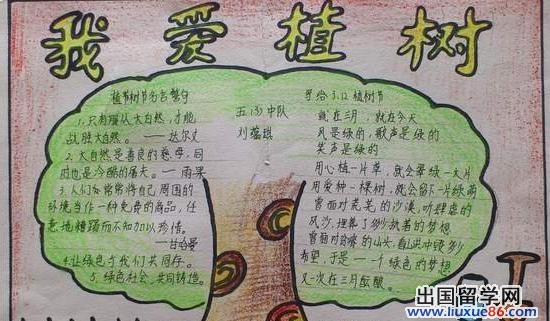 我爱植树
植树节名言警句
1.只有顺从大自然,才能
战胜大自然。——达尔文
2.大自然是善良的慈母,同
时也是冷酷的屠夫。——雨果
3.人们常常将自己周围的
环境当作一种免费的商品,任
意地糟蹋而不知加以珍惜。
——甘哈曼
4.让绿色与我们共同存。
5.绿色社会,共同铸造。
五(3)中队
刘蕴琪
3.12植树节
就在三月,就在今天
风是绿的,歌声是绿的
笑声是绿的
用心植一片草,就会翠绿一大片
用爱种一棵树,就会留下一片绿荫
曾面对茫茫的沙漠,听肆虐的
风沙,埋葬了多少执着的梦想
曾面对的山头,看洪冲毁多少
希望,于是一个绿色的梦想
又一次在三月酝酿。
出国留学网
www.liuxue86.com